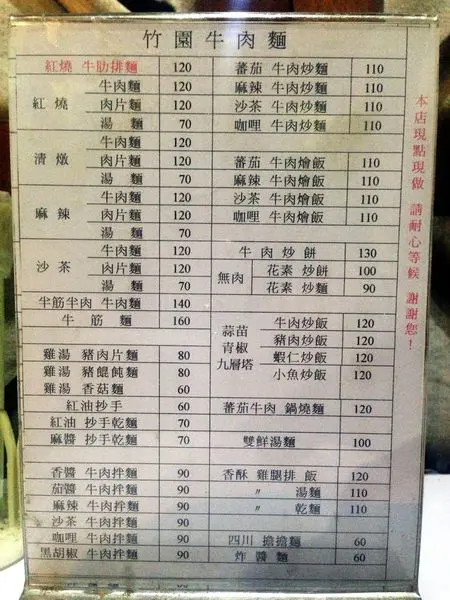 竹園牛肉麵
紅燒 牛肋排麵 120
紅燒
牛肉麵 120
肉片麵 120
湯 麵 70
清燉
牛肉麵 120
肉片麵 120
湯 麵 70
麻辣
牛肉麵 120
肉片麵 120
湯 麵 70
沙茶
牛肉麵 120
肉片麵 120
湯 麵 70
半筋半肉 牛肉麵 140
牛 筋 麵 160
雞湯 豬肉片麵 80
雞湯 豬餛飩麵 80
雞湯 香菇麵 60
紅油抄手 60
紅油 抄手乾麵 70
麻醬 抄手乾麵 70
香醬 牛肉拌麵 90
茄醬 牛肉拌麵 90
麻辣 牛肉拌麵 90
沙茶 牛肉拌麵 90
咖哩 牛肉拌麵 90
黑胡椒 牛肉拌麵 90
蕃茄 牛肉炒麵 110
麻辣 牛肉炒麵 110
沙茶 牛肉炒麵 110
咖哩 牛肉炒麵 110
蕃茄 牛肉燴飯 110
麻辣 牛肉燴飯 110
沙茶 牛肉燴飯 110
咖哩 牛肉燴飯 110
牛 肉 炒 餅 130
無肉
花素 炒餅 100
花素 炒麵 90
蒜苗
青椒
九層塔
牛肉炒飯 120
豬肉炒飯 120
蝦仁炒飯 120
小魚炒飯 120
蕃茄牛肉 鍋燒麵 120
雙鮮湯麵 100
香酥 雞腿排 飯 120
〃 湯麵 110
〃 乾麵 110
四川 擔擔麵 60
炸 醬 麵 60
本店現點現做 請耐心等候 謝謝您！